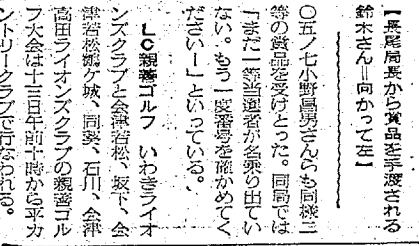 【長尾局長から賞品を手渡される
鈴木さん＝向かって左】
〇五ノ七小野昌男さんらも同様三
等の賞品を受けとった。同局では
「まだ一等当選者が名乗り出てい
ない。もう一度番号を確かめてく
ださい―」といっている。
LC親善ゴルフ　いわきライオ
ンズクラブと会津若松、坂下、会
津若松鶴ケ城、同葵、石川、会津
高田ライオンズクラブの親善ゴル
フ大会は十三日午前十時から平カ
ントリークラブで行なわれる。